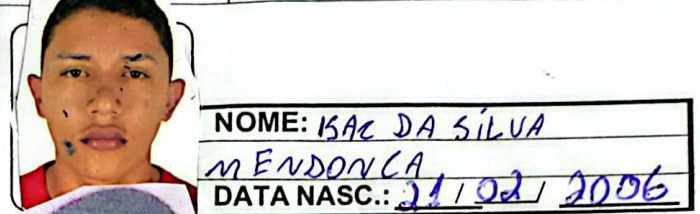 NOME: ISAC DA SILVA
MENDONCA
DATA NASC.: 21 / 02 / 2006